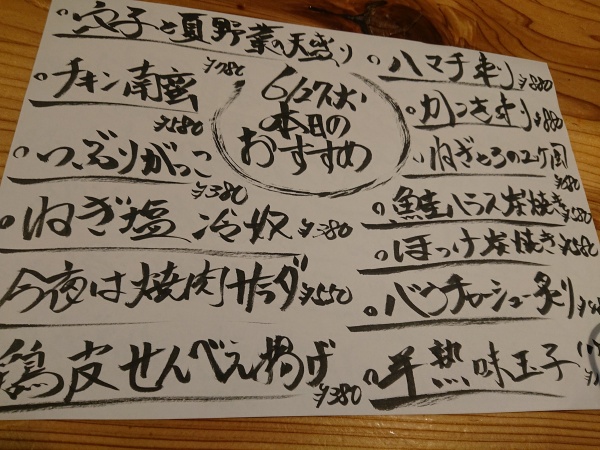 6/27(火)
本日の
おすすめ
穴子と夏野菜の天盛り
¥780
チキン南蛮
¥580
いぶりがっこ
¥380
ねぎ塩冷奴 ¥380
今夜は焼肉サラダ ¥550
鶏皮せんべえ揚げ
¥380
ハマチ刺り ¥880
かつを刺り ¥880
ねぎとろのユッケ風
¥680
鮭ハラス炭焼き ¥580
ほっけ炭焼き ¥580
バラチャーシュー炙り
半熟味玉子